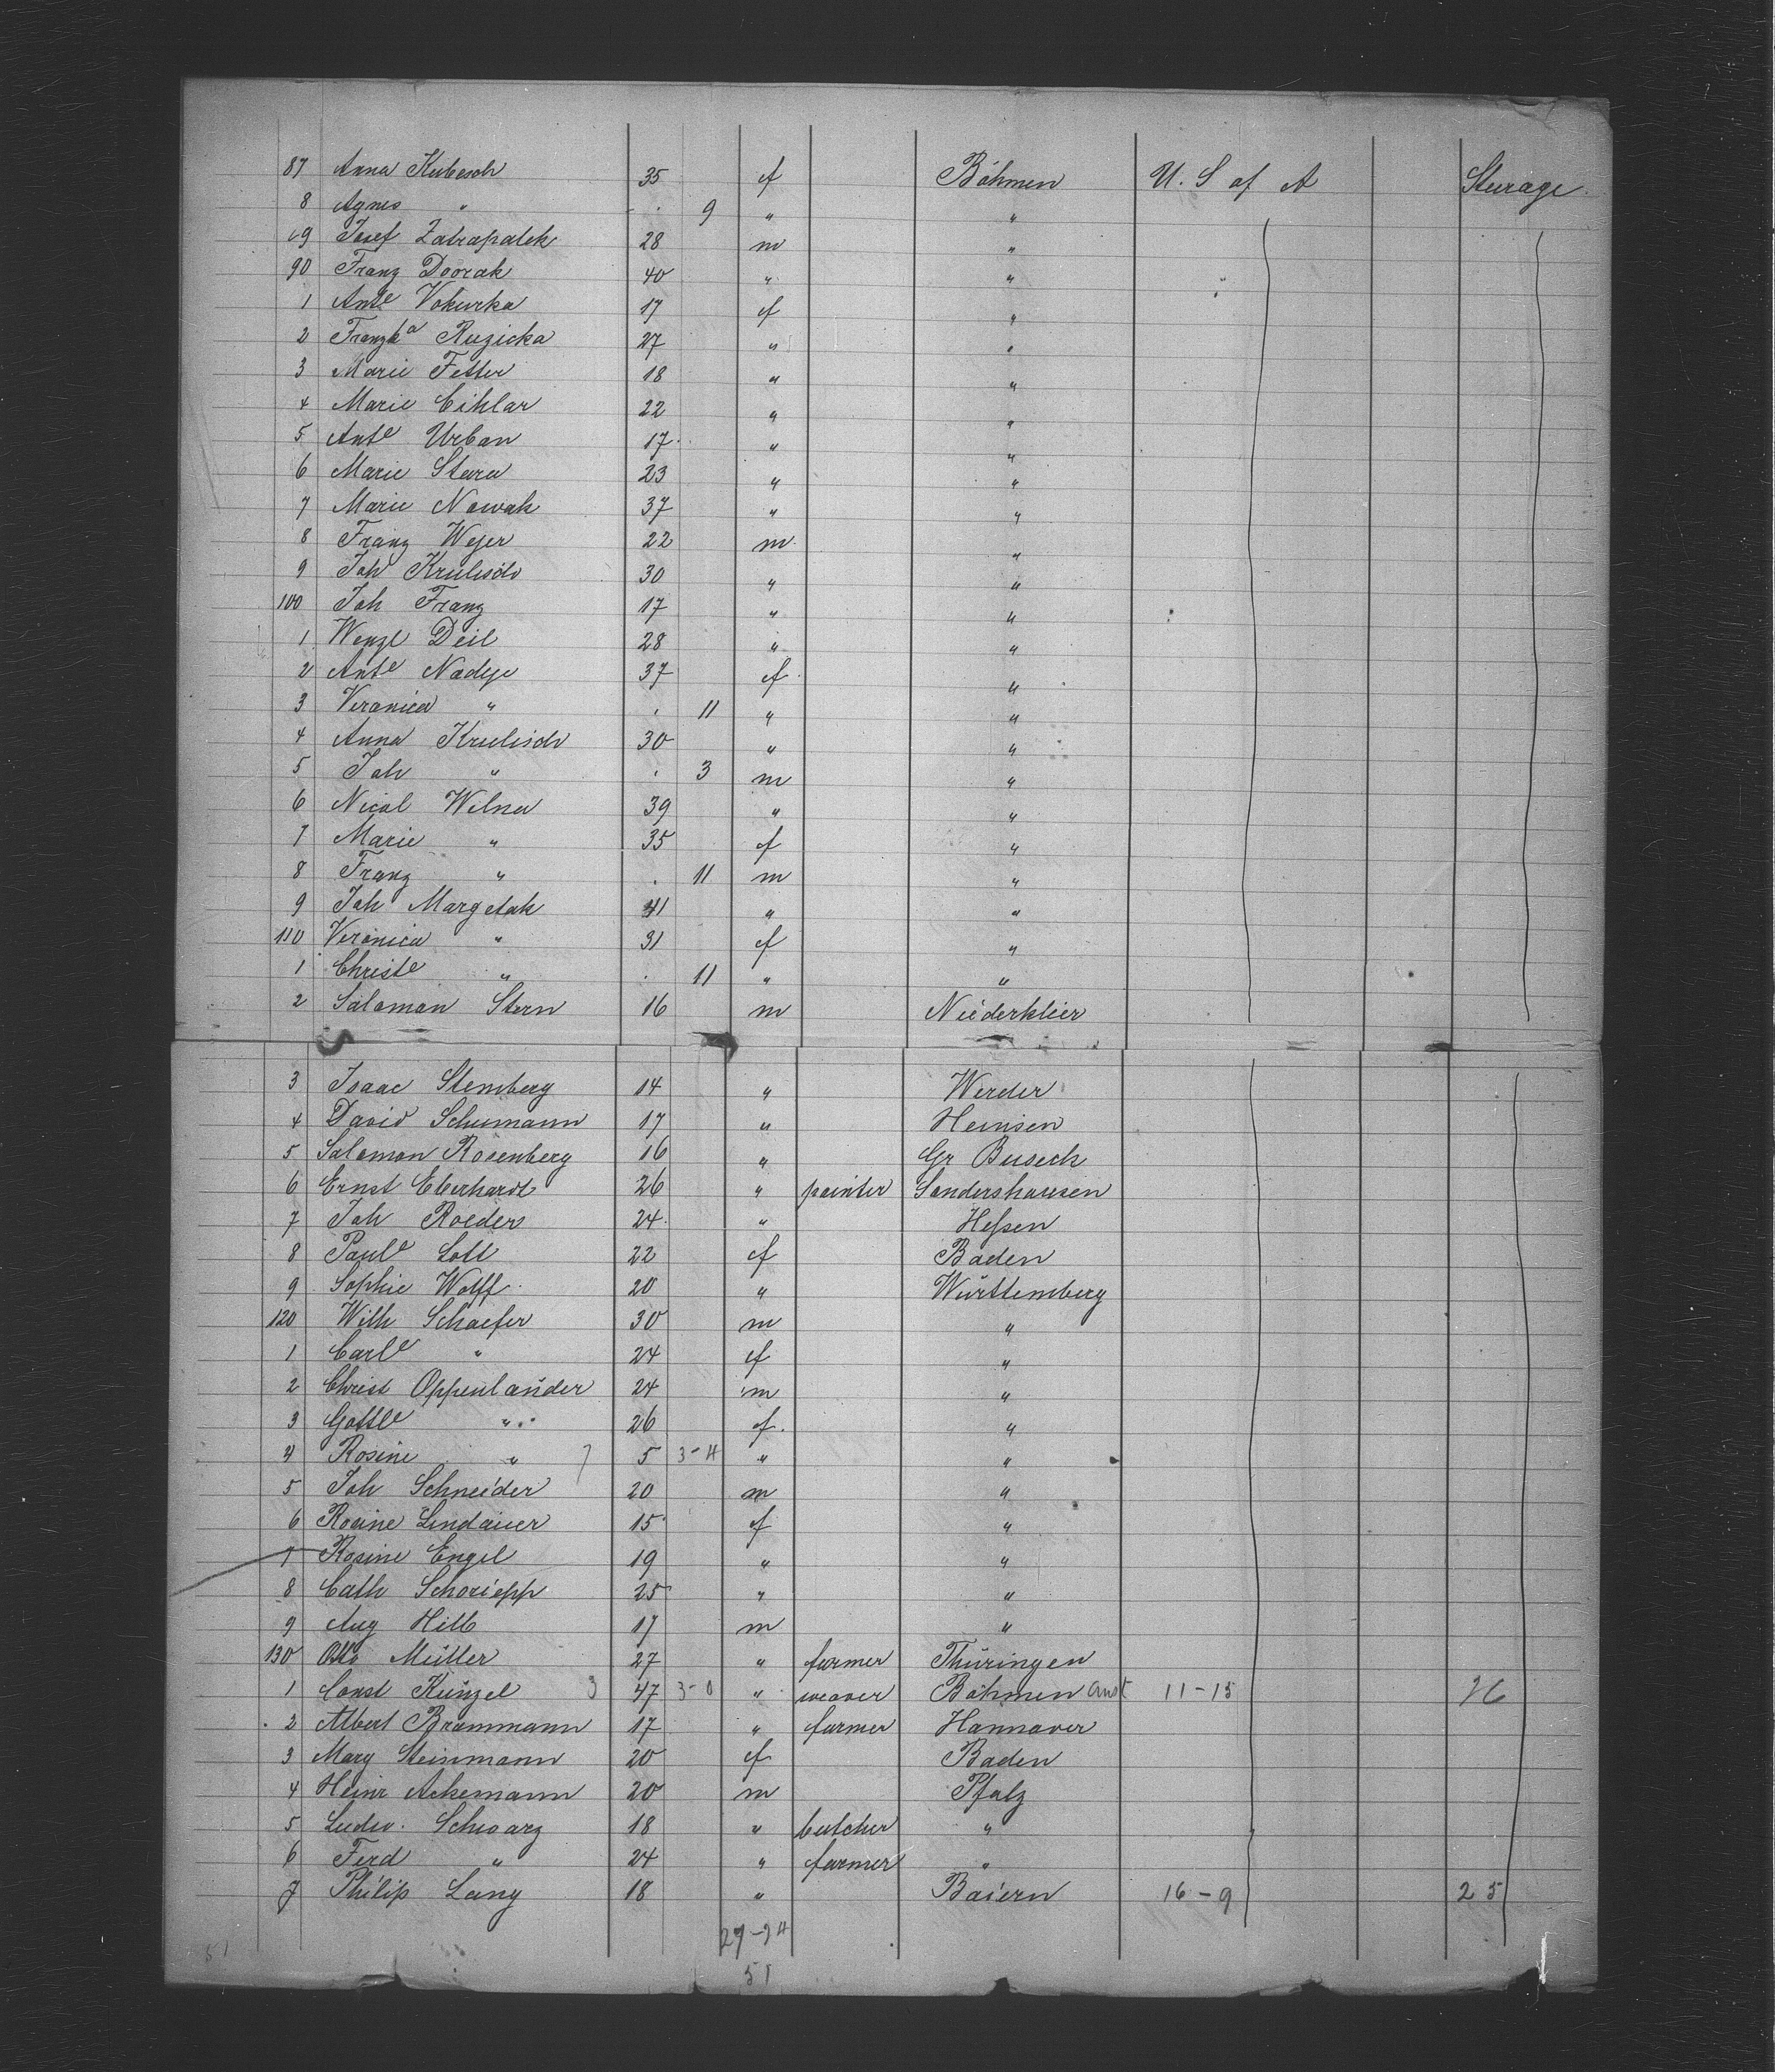 87 Anna Kubesch 35 f Böhmen U. S of A Sterage
8 Agnes " . 9 " "
89 Josef Zatrapalek 28 m "
90 Franz Dvorak 40 " "
1 Ante Vokurka 17 f "
2 Franzka Ruzicka 27 " "
3 Marie Fetter 18 " "
4 Marie Cihlar 22 " "
5 Ante Urban 17 " "
6 Marie Stara 23 " "
7 Marie Nowak 37 " "
8 Franz Weyer 22 m "
9 Joh Krulisch 30 " "
100 Joh Franz 17 " "
1 Wenzl Deil 28 " "
2 Ante Nadye 37 f "
3 Veronica " . 11 " "
4 Anna Krulisch 30 " "
5 Joh " . 3 m "
6 Nicol Wilna 39 " "
7 Marie " 35 f "
8 Franz " . 11 m "
9 Joh Margetak 41 " "
110 Veronica " 31 f "
1 Christe " . 11 " "
2 Salomon Stern 16 m Niederklier
3 Isaac Stemberg 14 " Werder
4 David Schumann 17 " Heinsen
5 Salomon Rosenberg 16 " Gr Buseck
6 Ernst Eberhardt 26 " painter Sondershausen
7 Joh Roeders 24 " Hessen
8 Paule Loll 22 f Baden
9 Sophie Wolff 20 " Württemberg
120 Wilh Schaefer 30 m "
1 Carle " 24 f "
2 Christ Oppenlander 24 m "
3 Gottle " 26 f "
4 Rosine " 7 5 3-4 " "
5 Joh Schneider 20 m "
6 Rosine Lindauer 15 f "
7 Rosine Engel 19 " "
8 Cath Schoriepp 25 " "
9 Aug Hilb 17 m "
130 Otto Müller 27 " farmer Thüringen
1 Const Künzel 3 47 3-0 " weaver Böhmen Aust 11-15 26
2 Albert Brammann 17 " farmer Hannover
3 Mary Steinmann 20 f Baden
4 Heinr Ackemann 20 m Pfalz
5 Ludw. Schwarz 18 " butcher "
6 Ferd " 24 " farmer "
7 Philip Lang 18 " Baiern 16-9 25
27-24
51 51